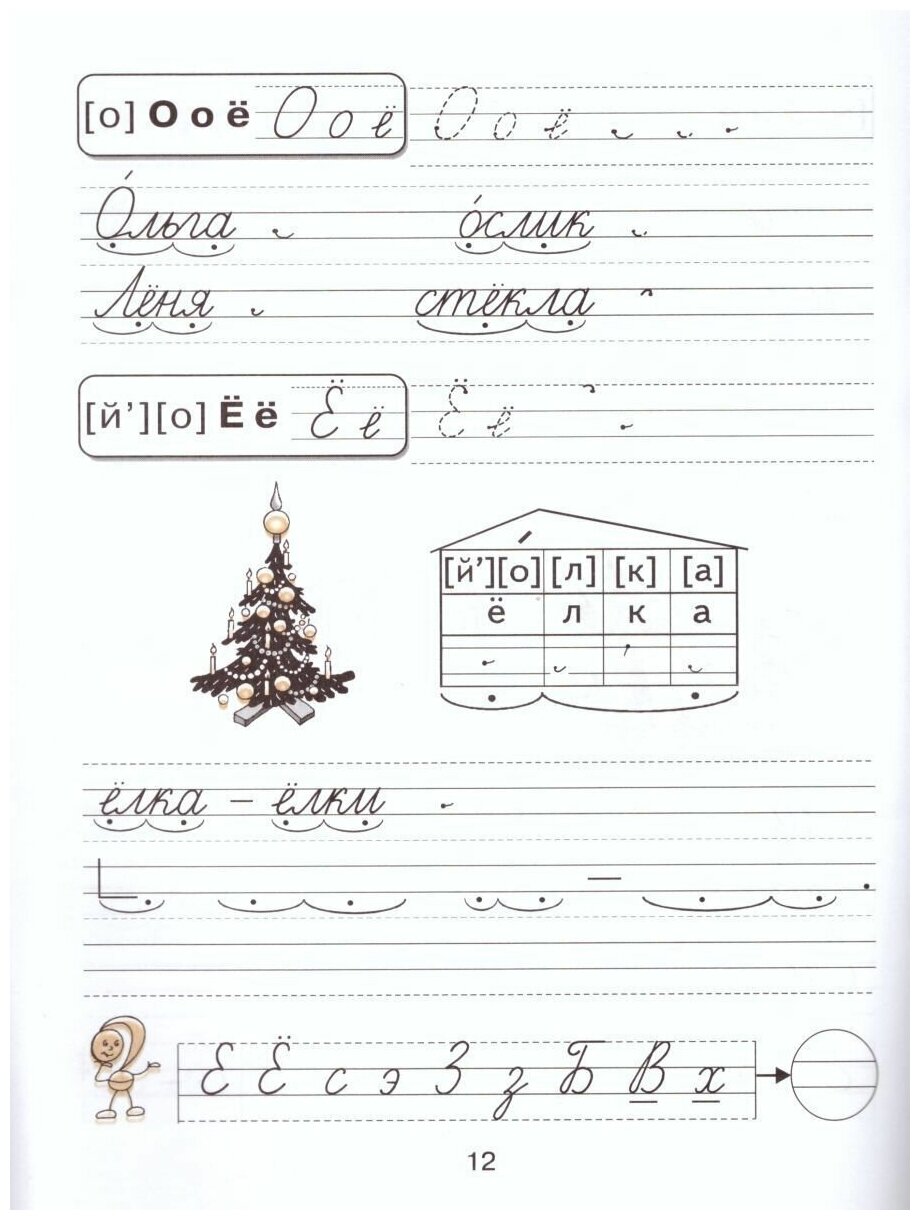 [о] О о ё О о ё О о ё
О́льга о́слик
Лёня стёкла
[й’][о] Ё ё Ё ё Ё ё
[й’][о] [л] [к] [а]
ё л к а
ёлка – ёлки
–
Е Ё с э З з Б В х
12